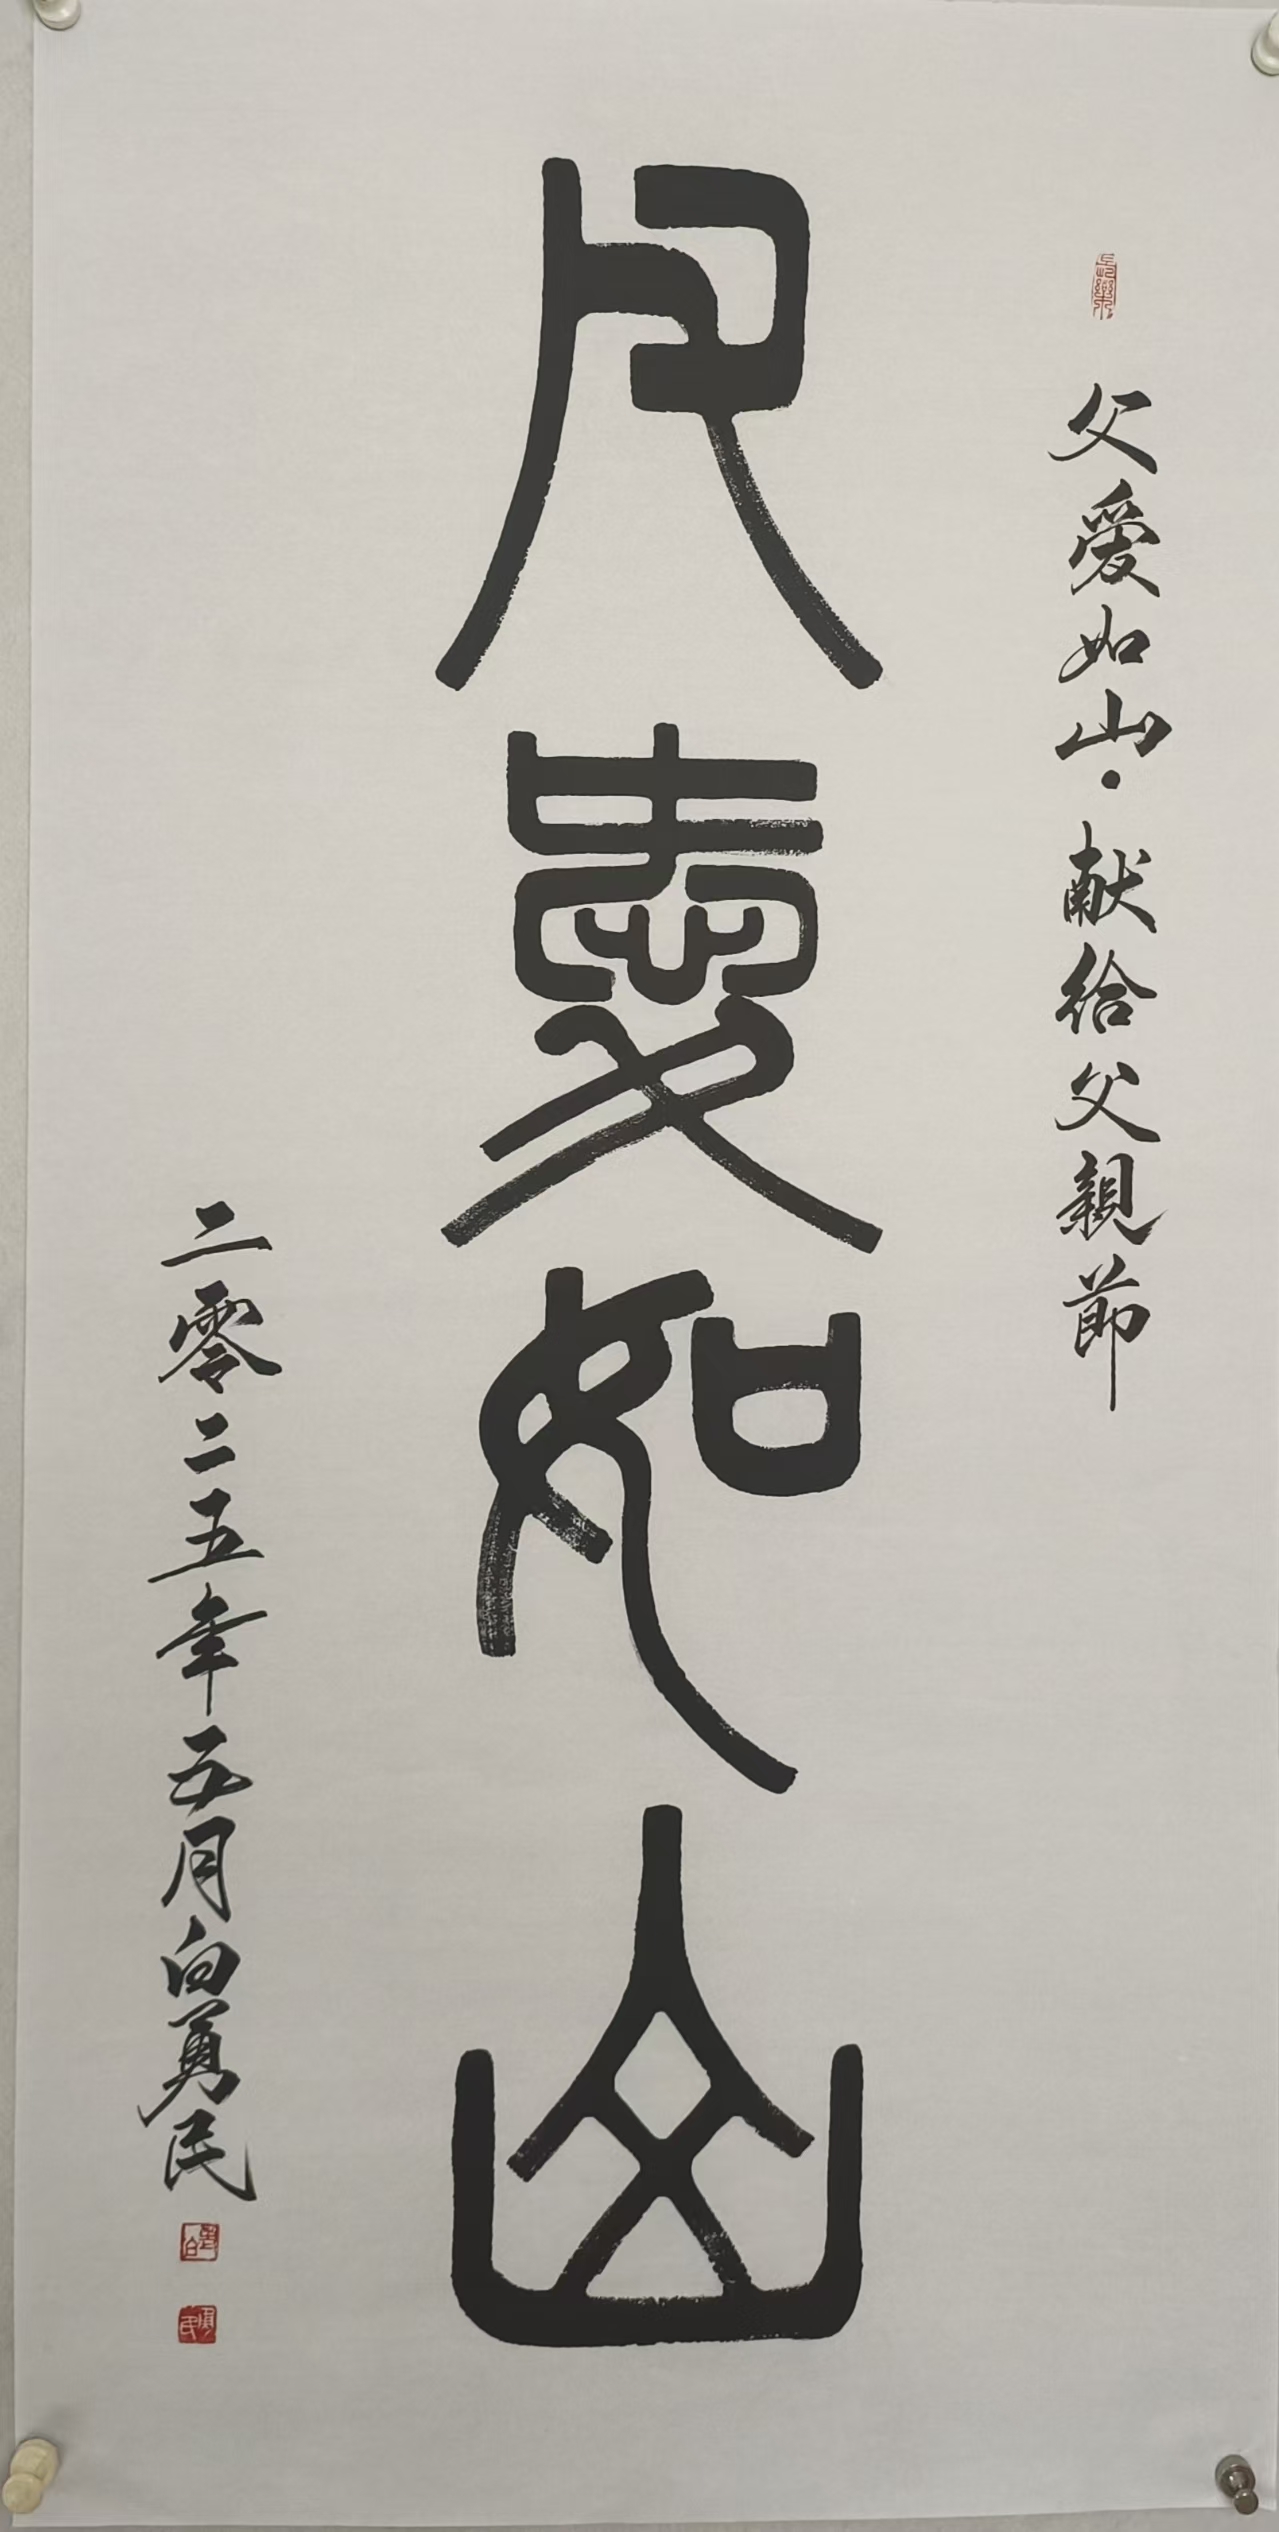 父爱如山·献给父親節
父愛如山
二零二五年五月白勇民